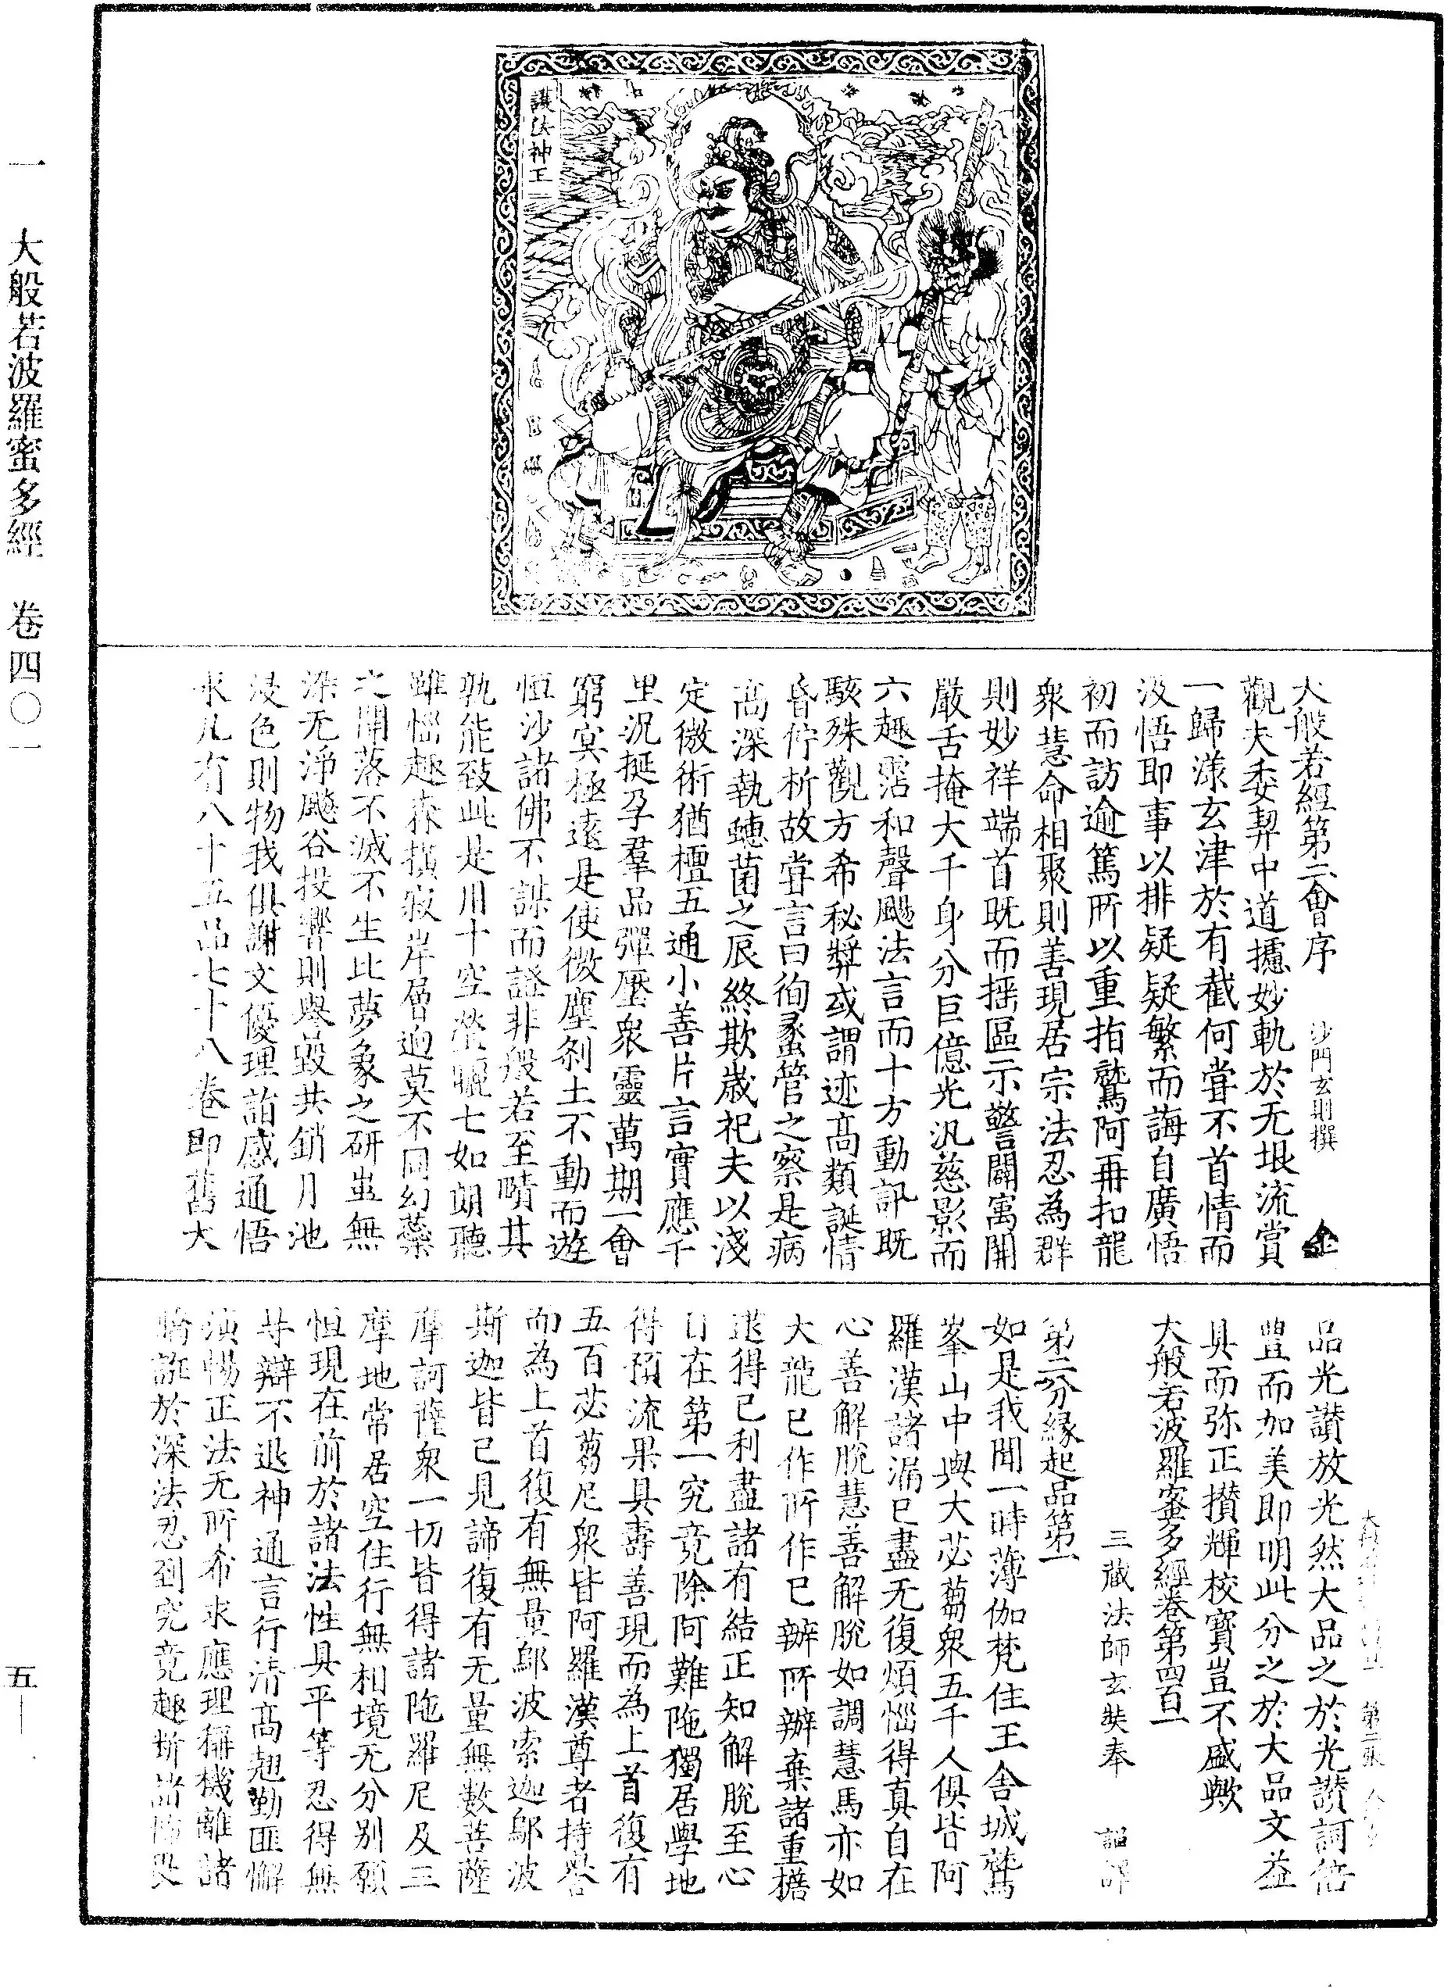 一 大般若波羅蜜多經 卷四〇一
護法神王
大般若經第二會序 沙門玄則撰
觀夫委契中道攄妙軌於无垠流賞
一歸漾玄津於有截何甞不首情而
汲悟即事以排疑疑繁而誨自廣悟
初而訪逾篤所以重指鷲阿再扣龍
衆慧命相聚則善現居宗法忍為群
則妙祥端首既而摇區示警闢寓開
嚴舌掩大千身分巨億光汎慈影而
六趣霑和聲颺法言而十方動訊既
駭殊觀方希秘弊或謂迹髙類誕情
昏佇析故甞言曰徇㝬管之察是病
髙深執蟪菌之辰終欺嵗祀夫以淺
定微術猶檀五通小善片言實應千
里況挻孕羣品彈壓衆靈萬期一會
窮冥極遠是使微塵剎土不動而遊
恒沙諸佛不謀而證非般若至賾其
孰能致此是用十空瑩矚七如朗聽
雖恦趣森擴寂岸層迥莫不同幻蘂
之開落不滅不生比夢象之研蚩無
染无淨飈谷投響則譽毀共銷月池
浸色則物我俱謝文優理詣感通悟
永凡有八十五品七十八卷即舊大
大般若 第二張
品光讚放光然大品之於光讚詞倍
豊而加美即明此分之於大品文益
具而弥正攅輝校寳豈不盛歟
大般若波羅蜜多經卷第四百一
三藏法師玄奘奉 詔譯
第二分縁起品第一
如是我聞一時薄伽梵住王舎城鷲
峯山中與大苾芻衆五千人俱皆阿
羅漢諸漏已盡无復煩惱得真自在
心善解脫慧善解脫如調慧馬亦如
大龍已作所作已辦所辦棄諸重擔
逮得已利盡諸有結正知解脫至心
自在第一究竟除阿難陁獨居學地
得預流果具壽善現而為上首復有
五百苾芻尼衆皆阿羅漢尊者持譽
而為上首復有無量鄔波索迦鄔波
斯迦皆已見諦復有无量無數菩薩
摩訶薩衆一切皆得諸陁羅尼及三
摩地常居空住行無相境无分別願
恒現在前於諸法性具平等忍得無
㝵辯不退神通言行清髙翹勤匪懈
演暢正法无所希求應理稱機離諸
矯誑於深法忍到究竟趣斷諸怖畏
五一